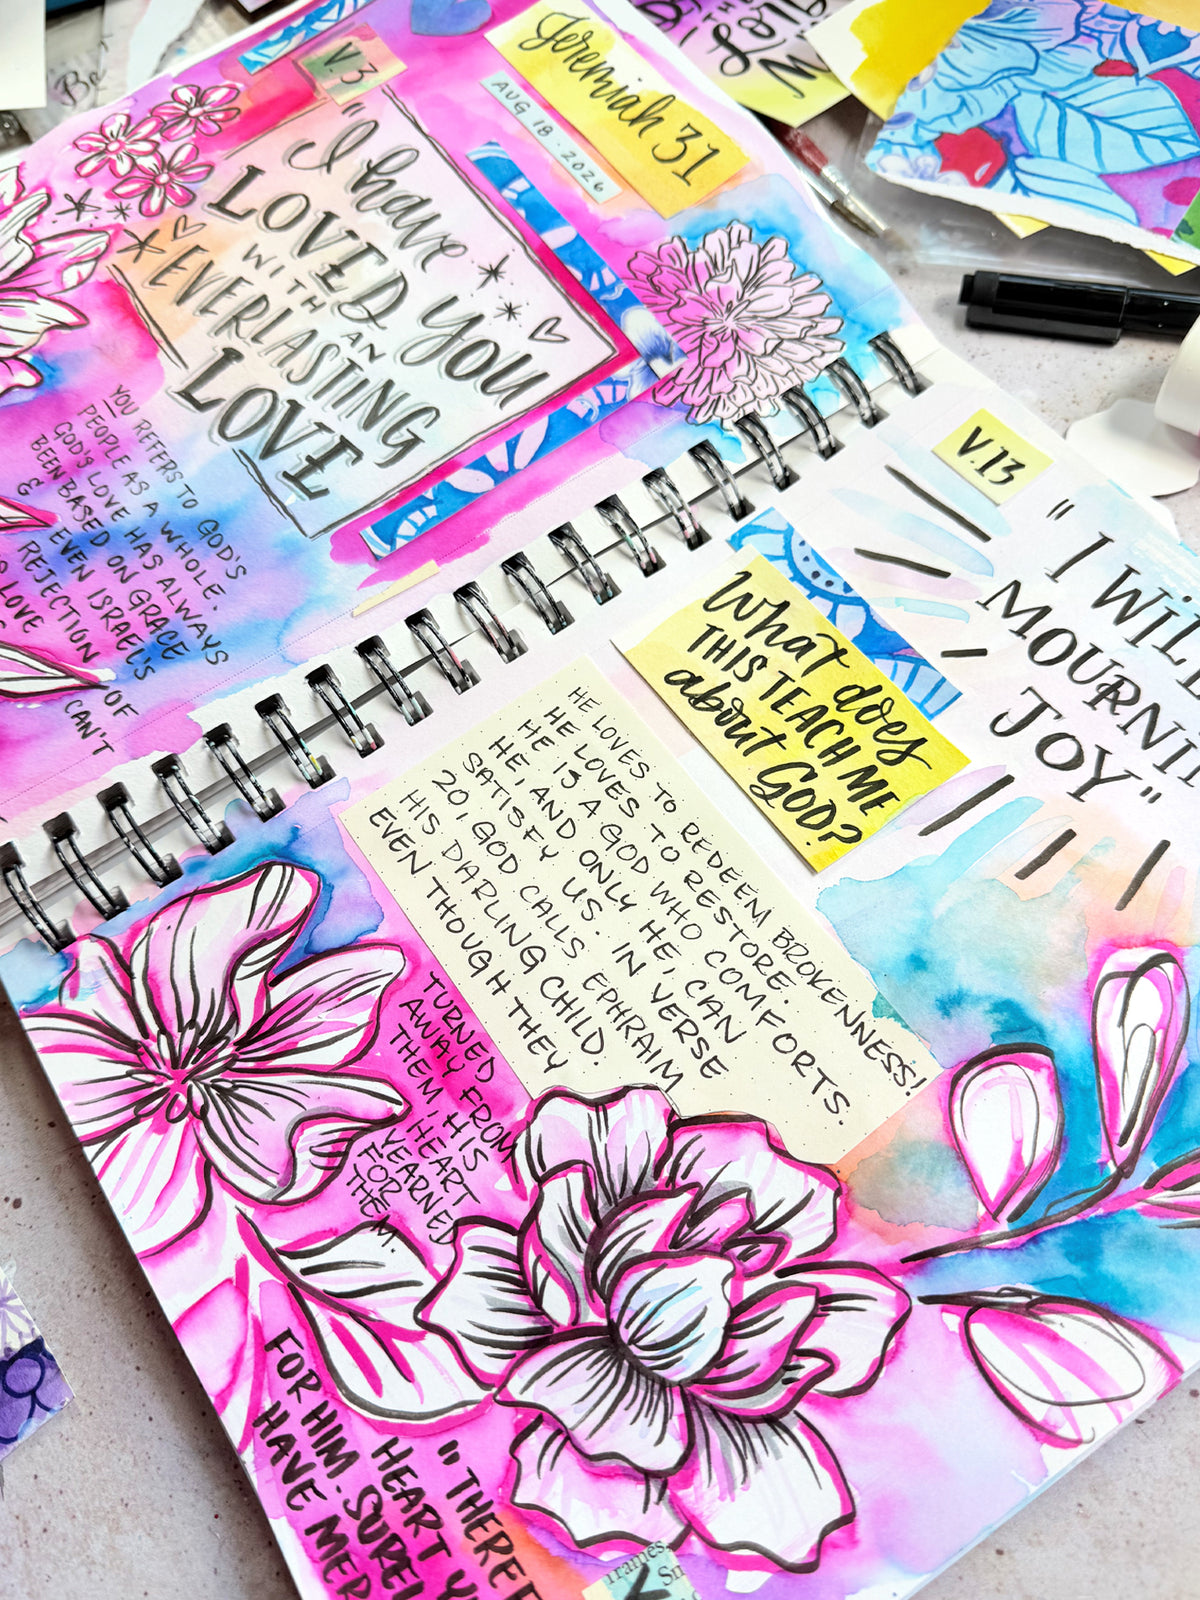 Jeremiah 31
AUG 18 · 2026
V. 3
"I have
LOVED YOU
WITH AN
EVERLASTING
LOVE
YOU REFERS TO GOD'S
PEOPLE AS A WHOLE.
GOD'S LOVE HAS ALWAYS
BEEN BASED ON GRACE
& EVEN ISRAEL'S
REJECTION OF
LOVE CAN'T
V. 13
"I WIL
MOURNI
JOY"
What does
THIS TEACH ME
about GOD?
HE LOVES TO REDEEM BROKENNESS!
HE LOVES TO RESTORE.
HE IS A GOD WHO COMFORTS.
HE, AND ONLY HE, CAN
SATISFY US. IN VERSE
20, GOD CALLS EPHRAIM
HIS DARLING CHILD.
EVEN THOUGH THEY
TURNED
AWAY FROM
THEM, HIS
HEART
YEARNED
FOR
THEM.
"THERE
HEART Y
FOR HIM. SUREL
HAVE MER
frames,
Be